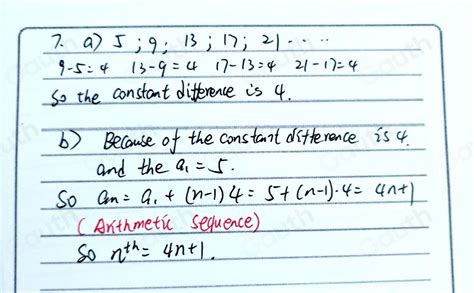 7. a) 5 ; 9 ; 13 ; 17 ; 21 .....
9-5=4 13-9=4 17-13=4 21-17=4
So the constant difference is 4.
b) Because of the constant difference is 4.
and the a₁ = 5.
So an = a₁ + (n-1) 4 = 5+(n-1)·4 = 4n+1
( Arithmetic sequence)
So nᵗʰ = 4n+1.